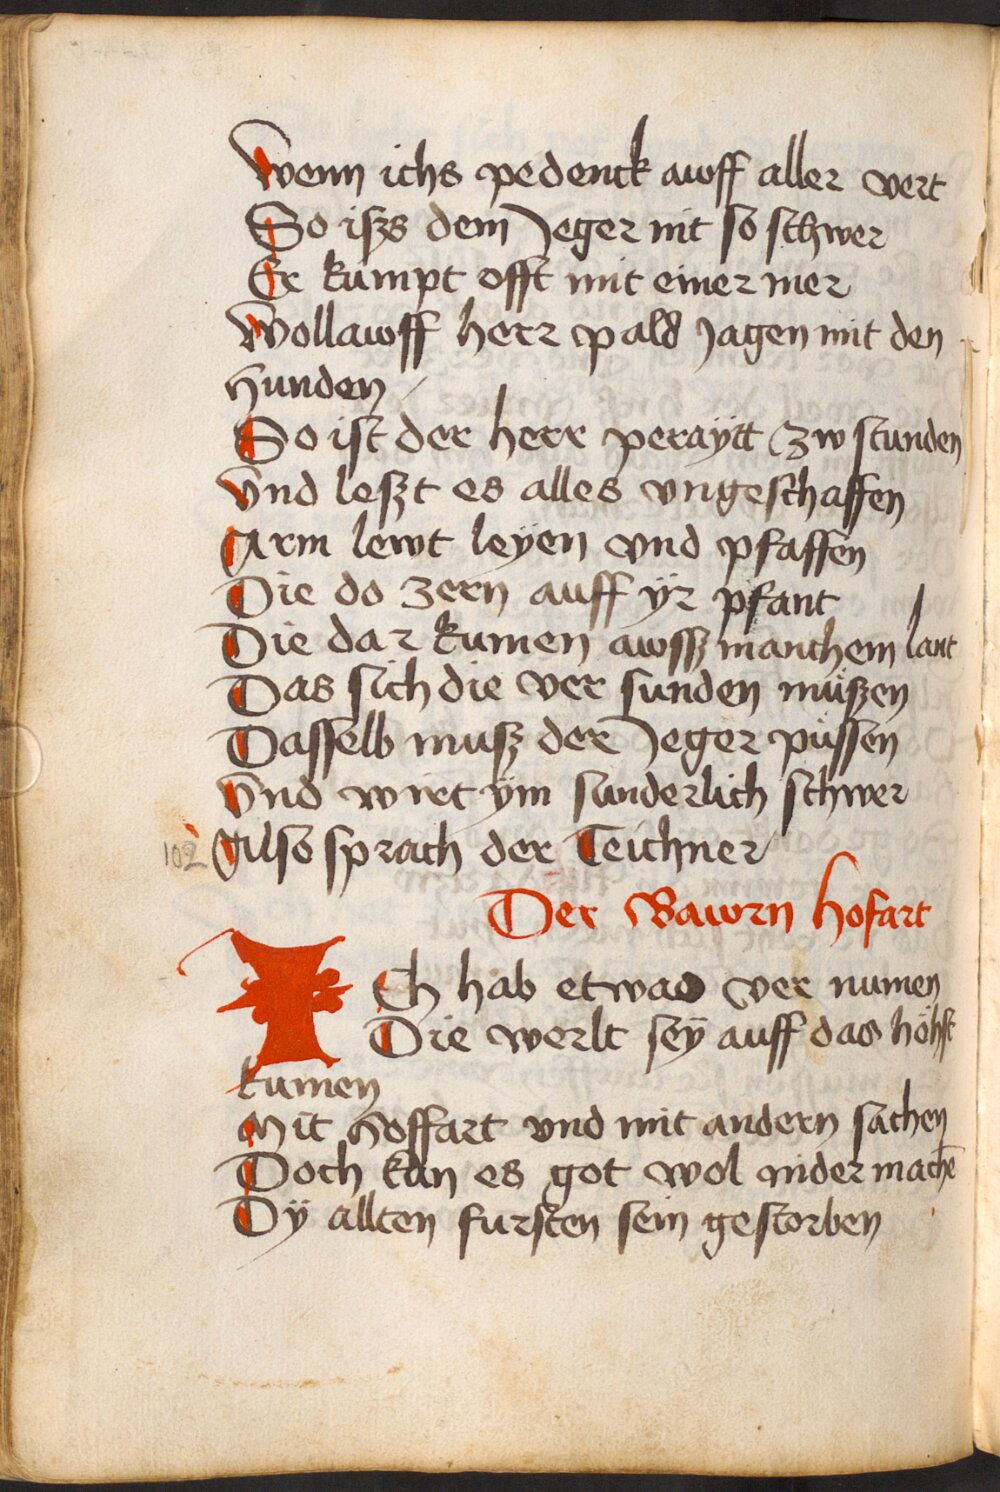 Wenn ichs pedenck awff aller vert
So ißs dem Jeger nit so schwer
Er kumpt offt mit einer mer
Wollawff herr pald Jagen mit den
Hunden /
So ist der herr peraÿtt zw stunden
Vnd leßt es alles vngeschaffen
Arm lewt leÿen vnd pfaffen
Die do zern auff ÿr pfant
Die dar kumen awssz manchem lant
Das sich die ver sunden müßen
Dasselb muß der Jeger püssen
Vnd wirt ÿm sunderlich schwer
102 Also sprach der Teichner
Der Bawrn hofart
ICh hab etwas ver numen
Die werlt seÿ auff das höhst
kumen
Mit Hoffart vnd mit andern sachen
Doch kan es got wol nider machē
Dÿ allten fursten sein gestorben